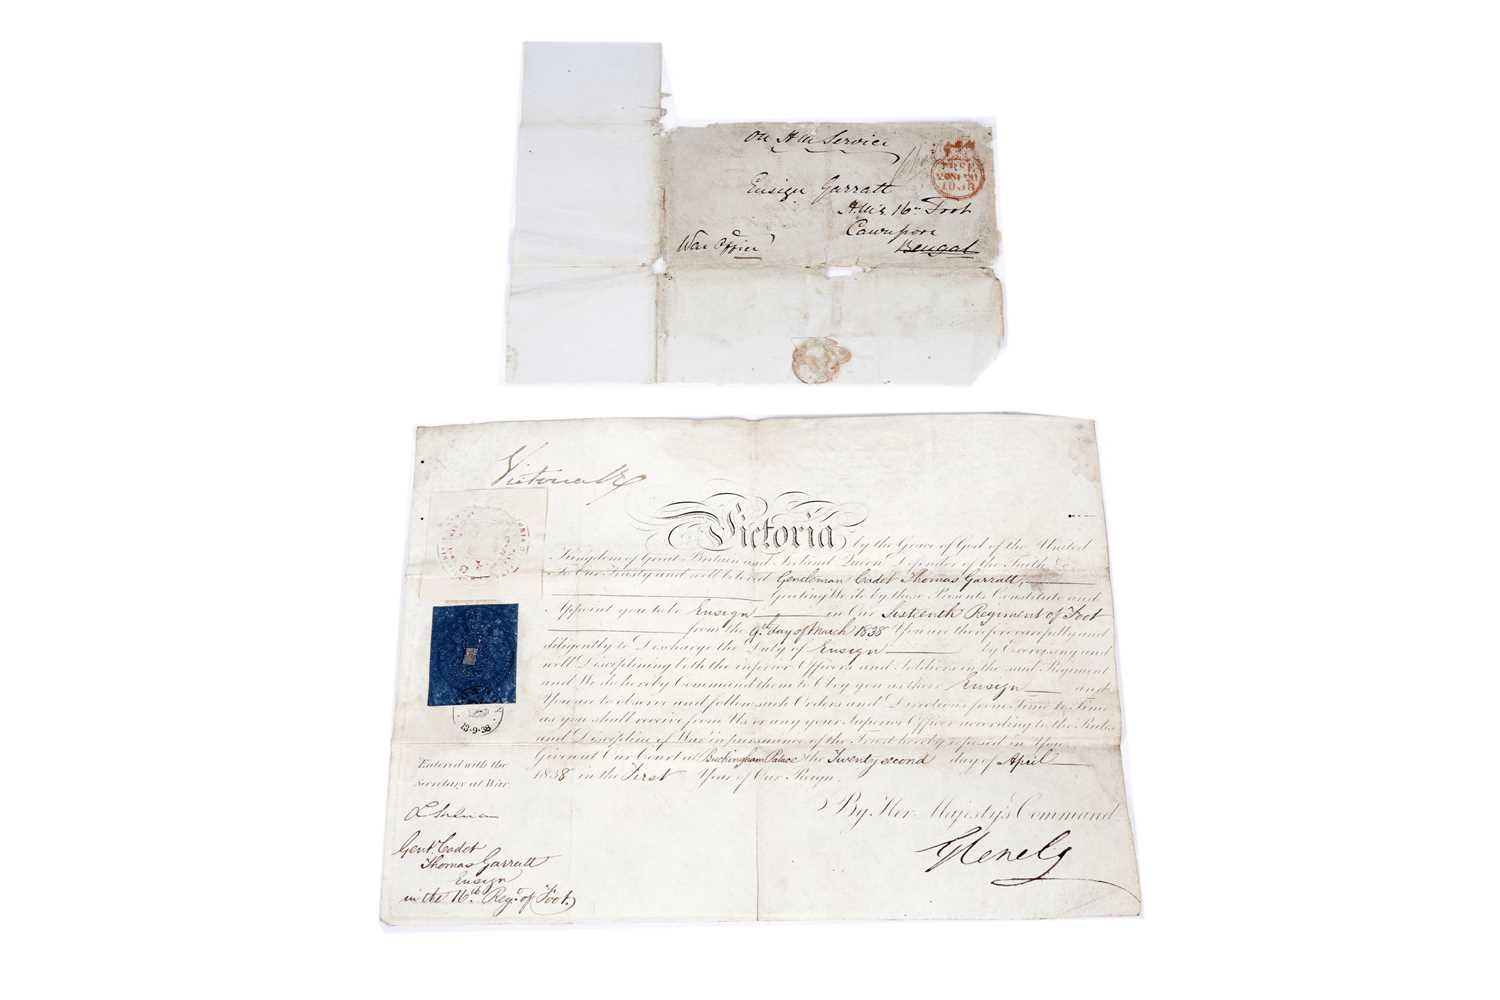 On H M Service
FREE
20 NO 20
1838
Ensign Garratt
H.M's. 16th Foot
Cawnpore
Bengal
War Office
Victoria R
Victoria by the Grace of God of the United
Kingdom of Great Britain and Ireland Queen Defender of the Faith &c
To Our Trusty and well beloved Gentleman Cadet Thomas Garratt,
Greeting We do by these Presents Constitute and
Appoint you to be Ensign in Our Sixteenth Regiment of Foot
from the 9th day of March 1838 You are therefore carefully and
diligently to Discharge the Duty of Ensign by Exercising and
well Disciplining both the inferior Officers and Soldiers in the said Regiment
and We do hereby Command them to Obey you as their Ensign and
You are to observe and follow such Orders and Directions from Time to Time
as you shall receive from Us or any your Superior Officer according to the Rules
and Discipline of War in pursuance of the Trust hereby reposed in You
Given at Our Court at Buckingham Palace the Twenty second day of April
1838 in the First Year of Our Reign
By Her Majesty's Command
Glenelg
13-9-38
Entered with the
Secretary at War
Gent. Cadet
Thomas Garratt
Ensign
in the 16th Regt. of Foot